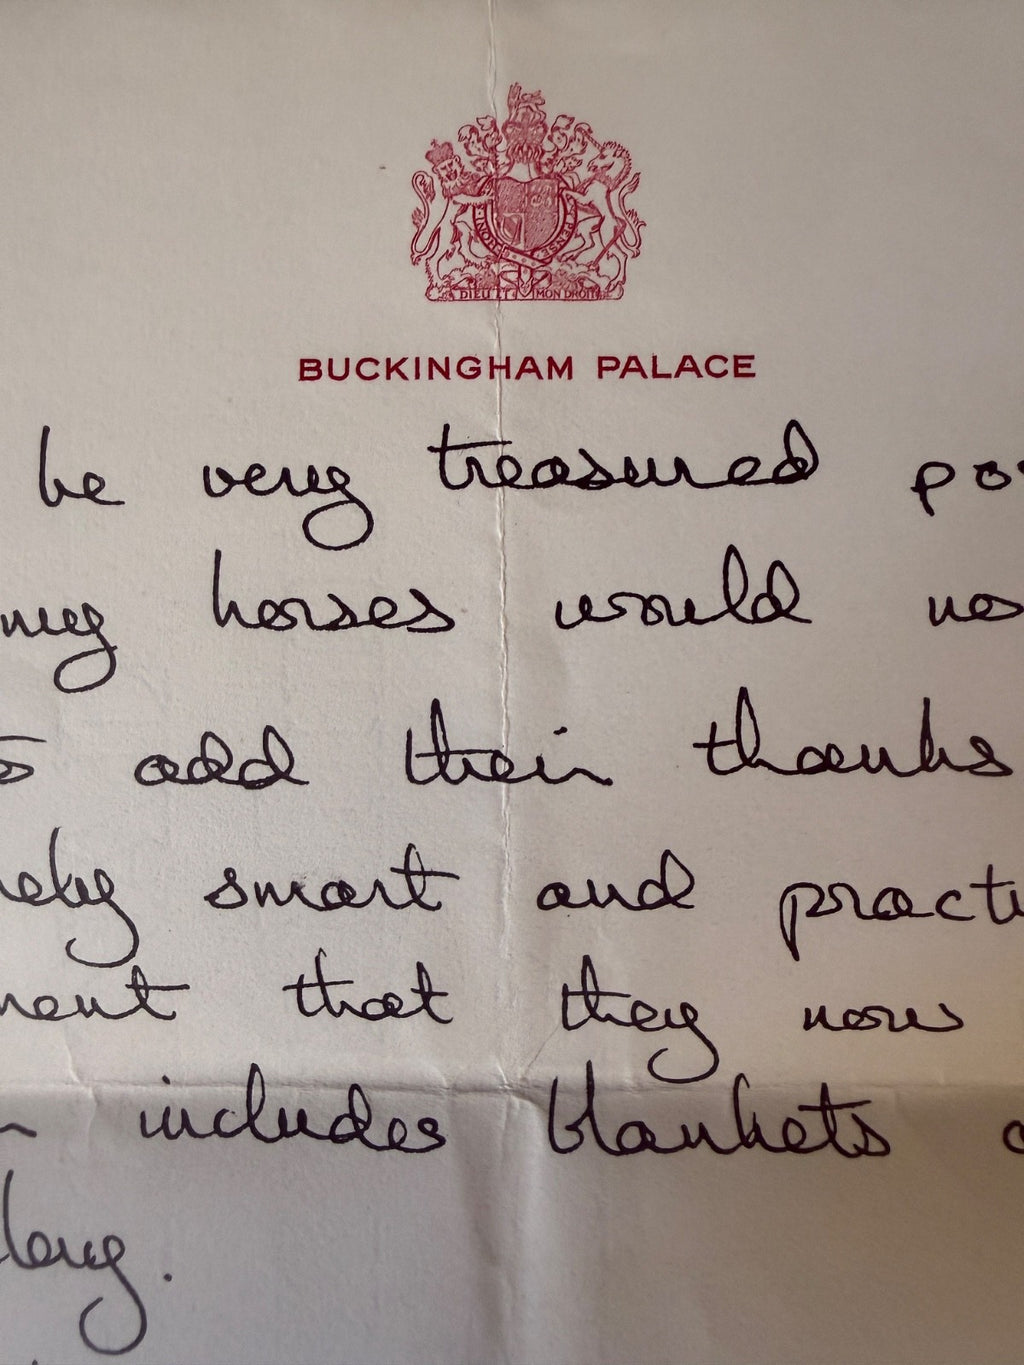 DIEU ET MON DROIT
BUCKINGHAM PALACE
be very treasured
my horses would
add their thanks
smart and
that they now
includes blankets